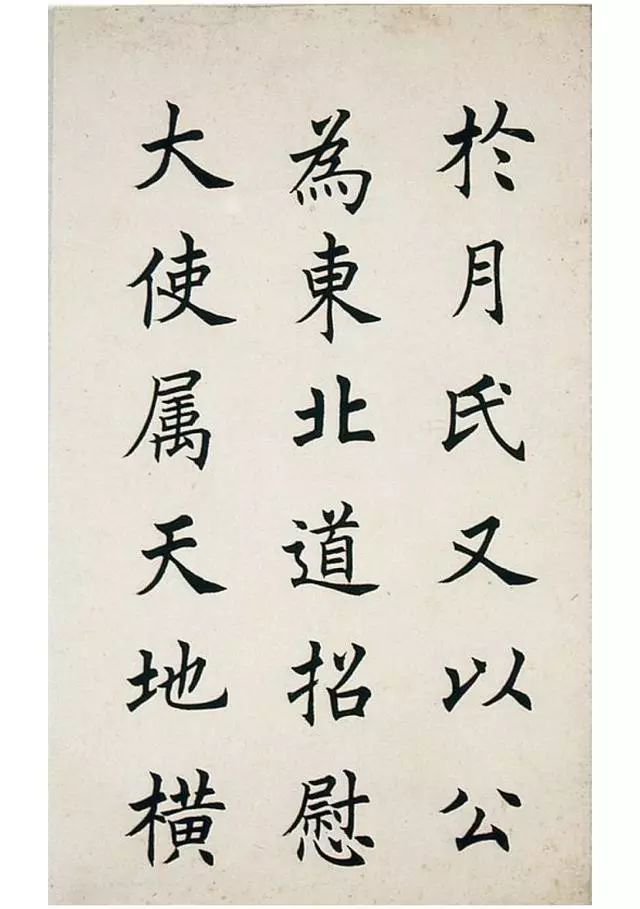 於月氏又以公
為東北道招慰
大使属天地横